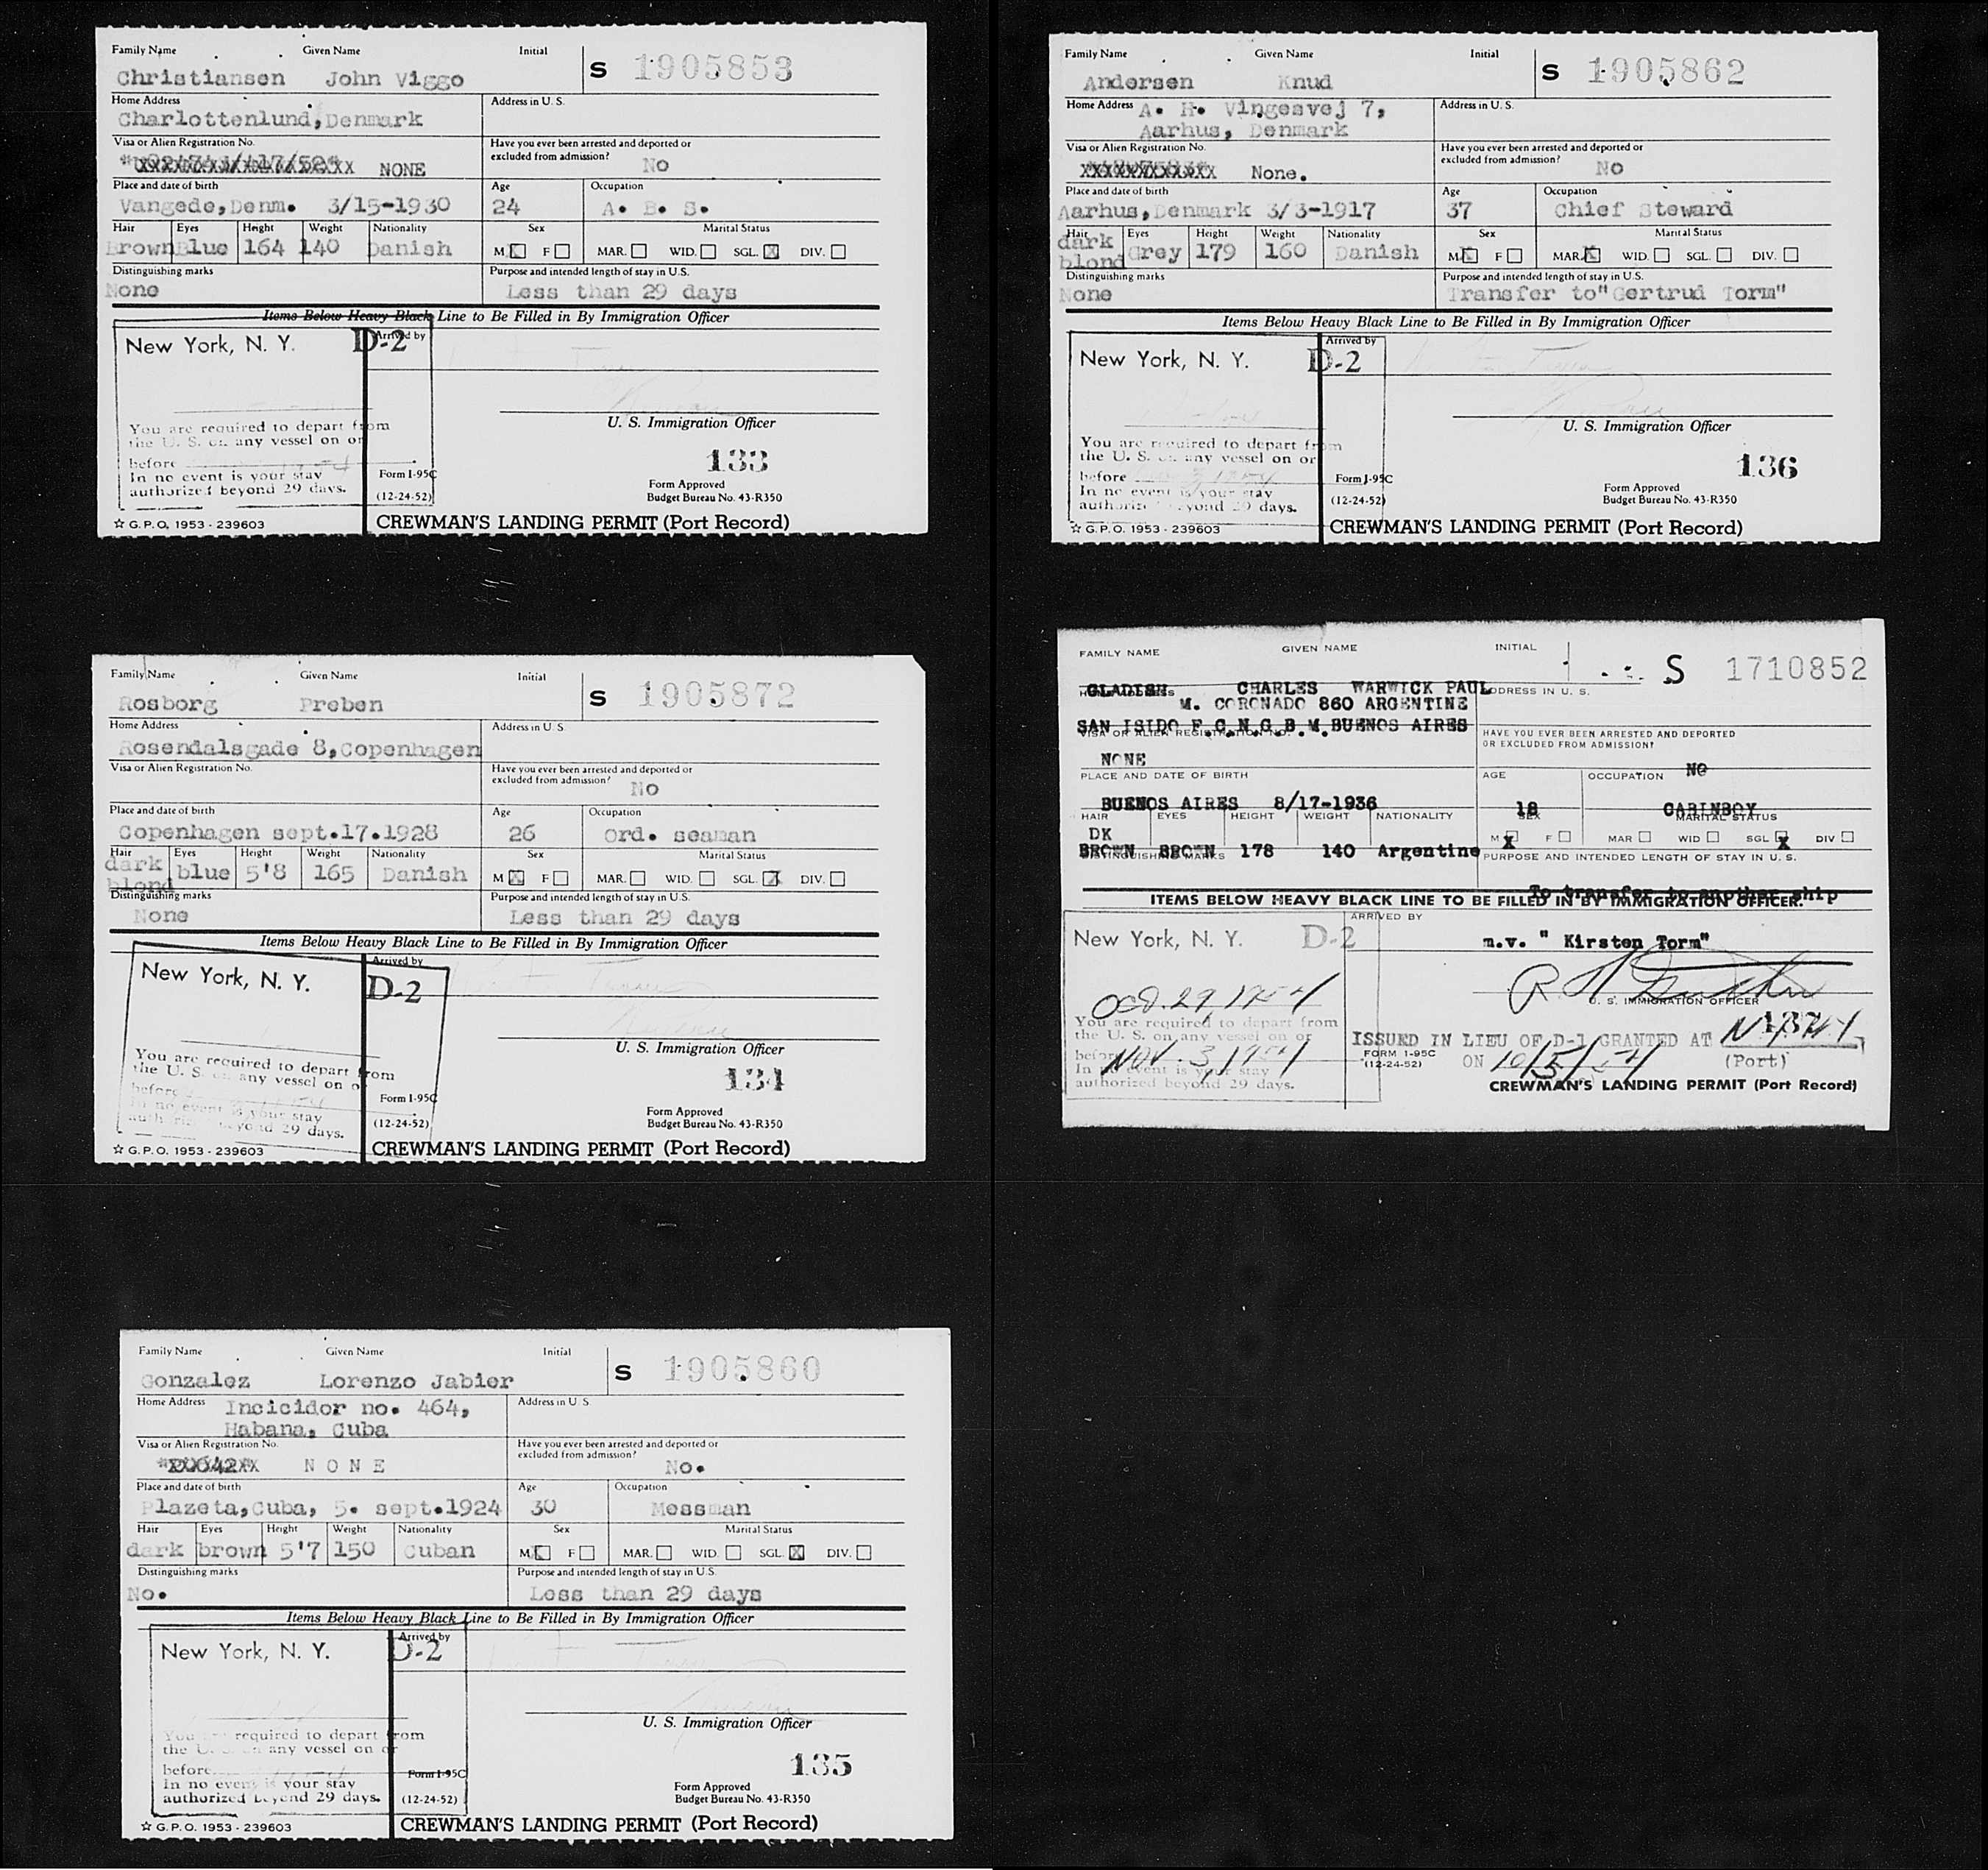 Family Name Given Name Initial
S 1905853
Christiansen John Viggo
Home Address Address in U. S.
Charlottenlund, Denmark
Visa or Alien Registration No. Have you ever been arrested and deported or
excluded from admission?
NONE No
Place and date of birth Age Occupation
Vangede, Denm. 3/15-1930 24 A. B. S.
Hair Eyes Height Weight Nationality Sex Marital Status
Brown Blue 164 140 Danish M X F MAR. WID. SGL. X DIV.
Distinguishing marks Purpose and intended length of stay in U.S.
None Less than 29 days
Items Below Heavy Black Line to Be Filled in By Immigration Officer
New York, N. Y. D-2 Arrived by
U. S. Immigration Officer
You are required to depart from
the U. S. on any vessel on or
before
In no event is your stay
authorized beyond 29 days.
133
Form I-95C
(12-24-52)
Form Approved
Budget Bureau No. 43-R350
☆ G.P.O. 1953 - 239603 CREWMAN'S LANDING PERMIT (Port Record)
Family Name Given Name Initial
S 1905872
Rosborg Preben
Home Address Address in U.S.
Rosendalsgade 8, Copenhagen
Visa or Alien Registration No. Have you ever been arrested and deported or
excluded from admission?
No
Place and date of birth Age Occupation
Copenhagen sept.17.1928 26 Ord. seaman
Hair Eyes Height Weight Nationality Sex Marital Status
dark
blond blue 5'8 165 Danish M X F MAR. WID. SGL. X DIV.
Distinguishing marks Purpose and intended length of stay in U.S.
None Less than 29 days
Items Below Heavy Black Line to Be Filled in By Immigration Officer
New York, N. Y. D-2 Arrived by
U. S. Immigration Officer
You are required to depart from
the U. S. on any vessel on or
before
In no event is your stay
authorized beyond 29 days.
134
Form I-95C
(12-24-52)
Form Approved
Budget Bureau No. 43-R350
☆ G.P.O. 1953 - 239603 CREWMAN'S LANDING PERMIT (Port Record)
Family Name Given Name Initial
S 1905860
Gonzalez Lorenzo Jabier
Home Address Address in U.S.
Incicidor no. 464,
Habana, Cuba
Visa or Alien Registration No. Have you ever been arrested and deported or
excluded from admission?
N O N E No.
Place and date of birth Age Occupation
Plazeta, Cuba, 5. sept.1924 30 Messman
Hair Eyes Height Weight Nationality Sex Marital Status
dark brown 5'7 150 Cuban M X F MAR. WID. SGL. X DIV.
Distinguishing marks Purpose and intended length of stay in U.S.
No. Less than 29 days
Items Below Heavy Black Line to Be Filled in By Immigration Officer
New York, N. Y. D-2 Arrived by
U. S. Immigration Officer
You are required to depart from
the U. S. on any vessel on or
before
In no event is your stay
authorized beyond 29 days.
135
Form I-95C
(12-24-52)
Form Approved
Budget Bureau No. 43-R350
☆ G.P.O. 1953 - 239603 CREWMAN'S LANDING PERMIT (Port Record)
Family Name Given Name Initial
S 1905862
Andersen Knud
Home Address Address in U.S.
A. H. Vingesvej 7,
Aarhus, Denmark
Visa or Alien Registration No. Have you ever been arrested and deported or
excluded from admission?
None. No
Place and date of birth Age Occupation
Aarhus, Denmark 3/3-1917 37 Chief Steward
Hair Eyes Height Weight Nationality Sex Marital Status
dark
blond Grey 179 160 Danish M X F MAR. X WID. SGL. DIV.
Distinguishing marks Purpose and intended length of stay in U.S.
None Transfer to "Gertrud Torm"
Items Below Heavy Black Line to Be Filled in By Immigration Officer
New York, N. Y. D-2 Arrived by
U. S. Immigration Officer
You are required to depart from
the U. S. on any vessel on or
before
In no event is your stay
authorized beyond 29 days.
136
Form I-95C
(12-24-52)
Form Approved
Budget Bureau No. 43-R350
☆ G.P.O. 1953 - 239603 CREWMAN'S LANDING PERMIT (Port Record)
FAMILY NAME GIVEN NAME INITIAL
S 1710852
GLADISH CHARLES WARWICK PAUL
HOME ADDRESS ADDRESS IN U. S.
M. CORONADO 860 ARGENTINE
SAN ISIDO F.C.N.G.B.M. BUENOS AIRES
VISA OR ALIEN REGISTRATION NO. HAVE YOU EVER BEEN ARRESTED AND DEPORTED
OR EXCLUDED FROM ADMISSION?
NONE NO
PLACE AND DATE OF BIRTH AGE OCCUPATION
BUENOS AIRES 8/17-1936 18 CABINBOY
HAIR EYES HEIGHT WEIGHT NATIONALITY SEX MARITAL STATUS
DK
BROWN BROWN 178 140 Argentine M X F MAR WID SGL X DIV
DISTINGUISHING MARKS PURPOSE AND INTENDED LENGTH OF STAY IN U. S.
To transfer to another ship
ITEMS BELOW HEAVY BLACK LINE TO BE FILLED IN BY IMMIGRATION OFFICER.
New York, N. Y. D-2 ARRIVED BY
m.v. " Kirsten Torm"
Oct. 29, 1954
U. S. IMMIGRATION OFFICER
You are required to depart from
the U. S. on any vessel on or
before Nov. 3, 1954
In no event is your stay
authorized beyond 29 days.
137
ISSUED IN LIEU OF D-1 GRANTED AT
FORM I-95C
(12-24-52)
ON 10/5/54 (Port)
CREWMAN'S LANDING PERMIT (Port Record)